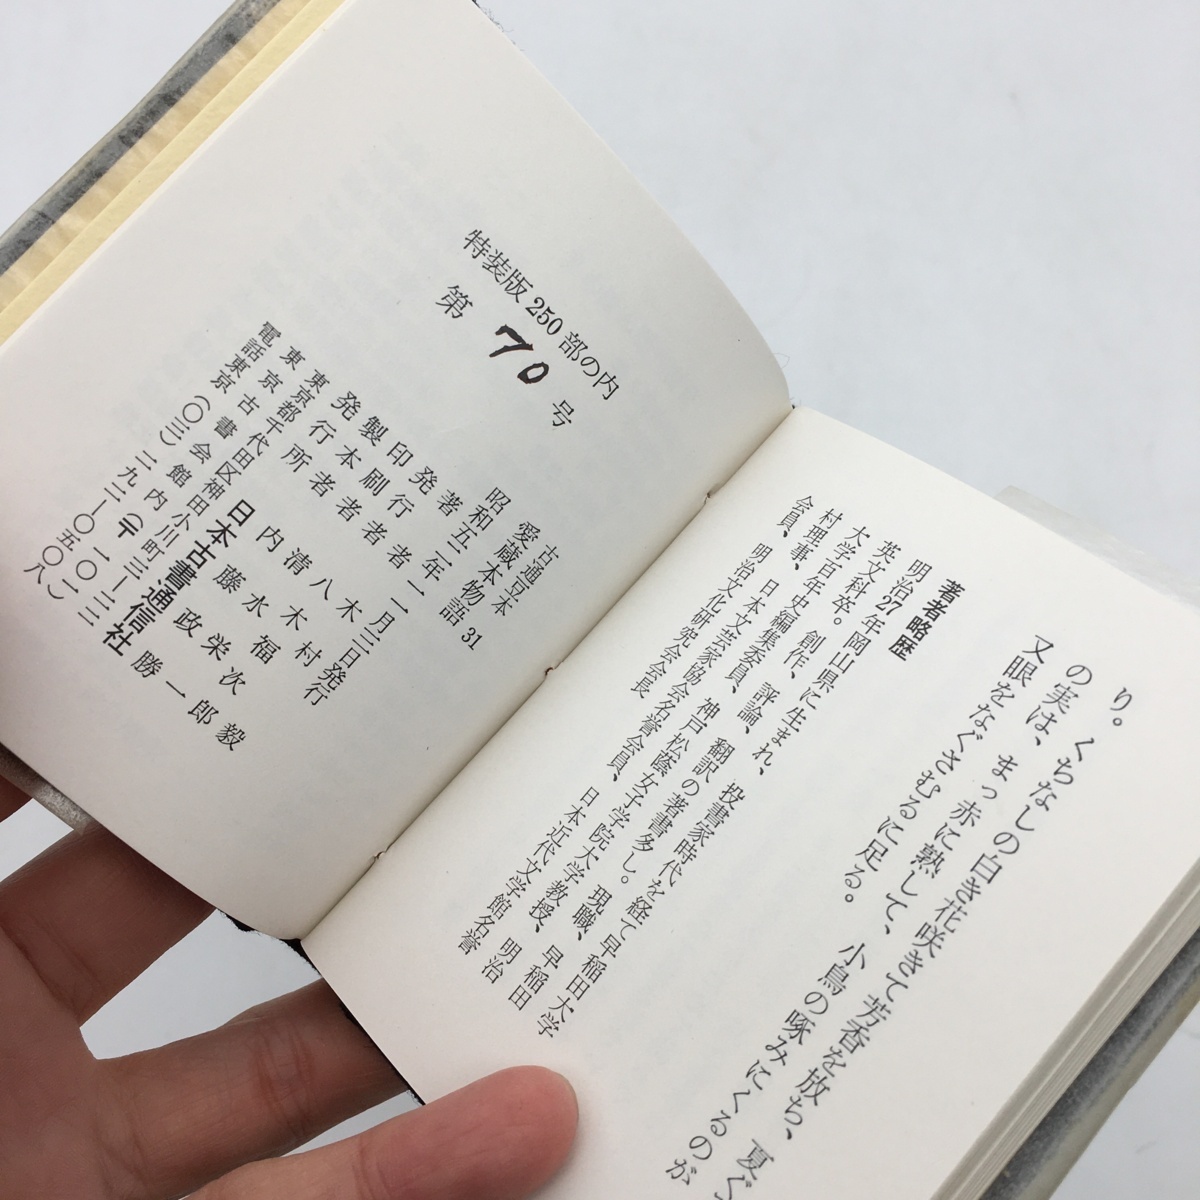 り。くちなしの白き花咲きて芳香を放ち、夏ぐ
の実は、まっ赤に熟して、小鳥の啄みにくるのが
又眼をなぐさむるに足る。
著者略歴
明治27年岡山県に生まれ、投書家時代を経て早稲田大学
英文科卒。創作、評論、翻訳の著書多し。現職、早稲田
大学百年史編集委員、神戸松蔭女子学院大学教授、明治
村理事、日本文芸家協会名誉会員、日本近代文学館名誉
会員、明治文化研究会会長
特装版250部の内
第 70 号
古通豆本 31
愛蔵本物語
昭和五二年二月三日発行
著者 木村毅
発行者 八木福次郎
印刷者 清水栄一
製本者 内藤政勝
発行所 日本古書通信社
東京都千代田区神田小川町三ー二二
東京古書会館内(〒一〇一)
電話東京(〇三)二九二ー〇五〇八